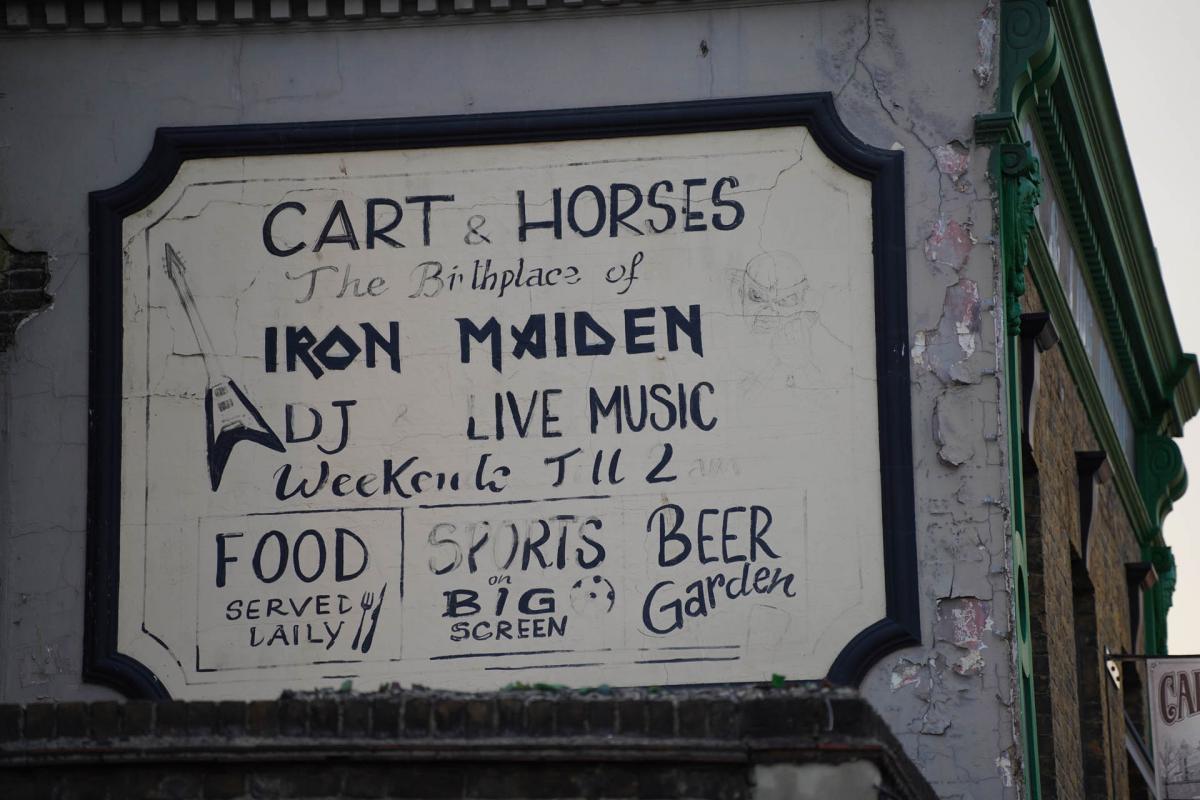 CART & HORSES
The Birthplace of
IRON MAIDEN
DJ & LIVE MUSIC
Weekends Till 2am
FOOD
SERVED
DAILY
SPORTS
on
BIG
SCREEN
BEER
Garden
CA